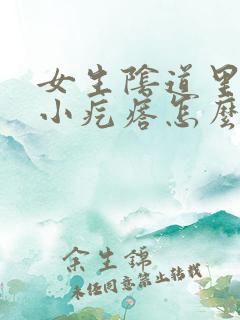 女生陰道里
小疙瘩怎麼
余生錦
未经同意禁止转载